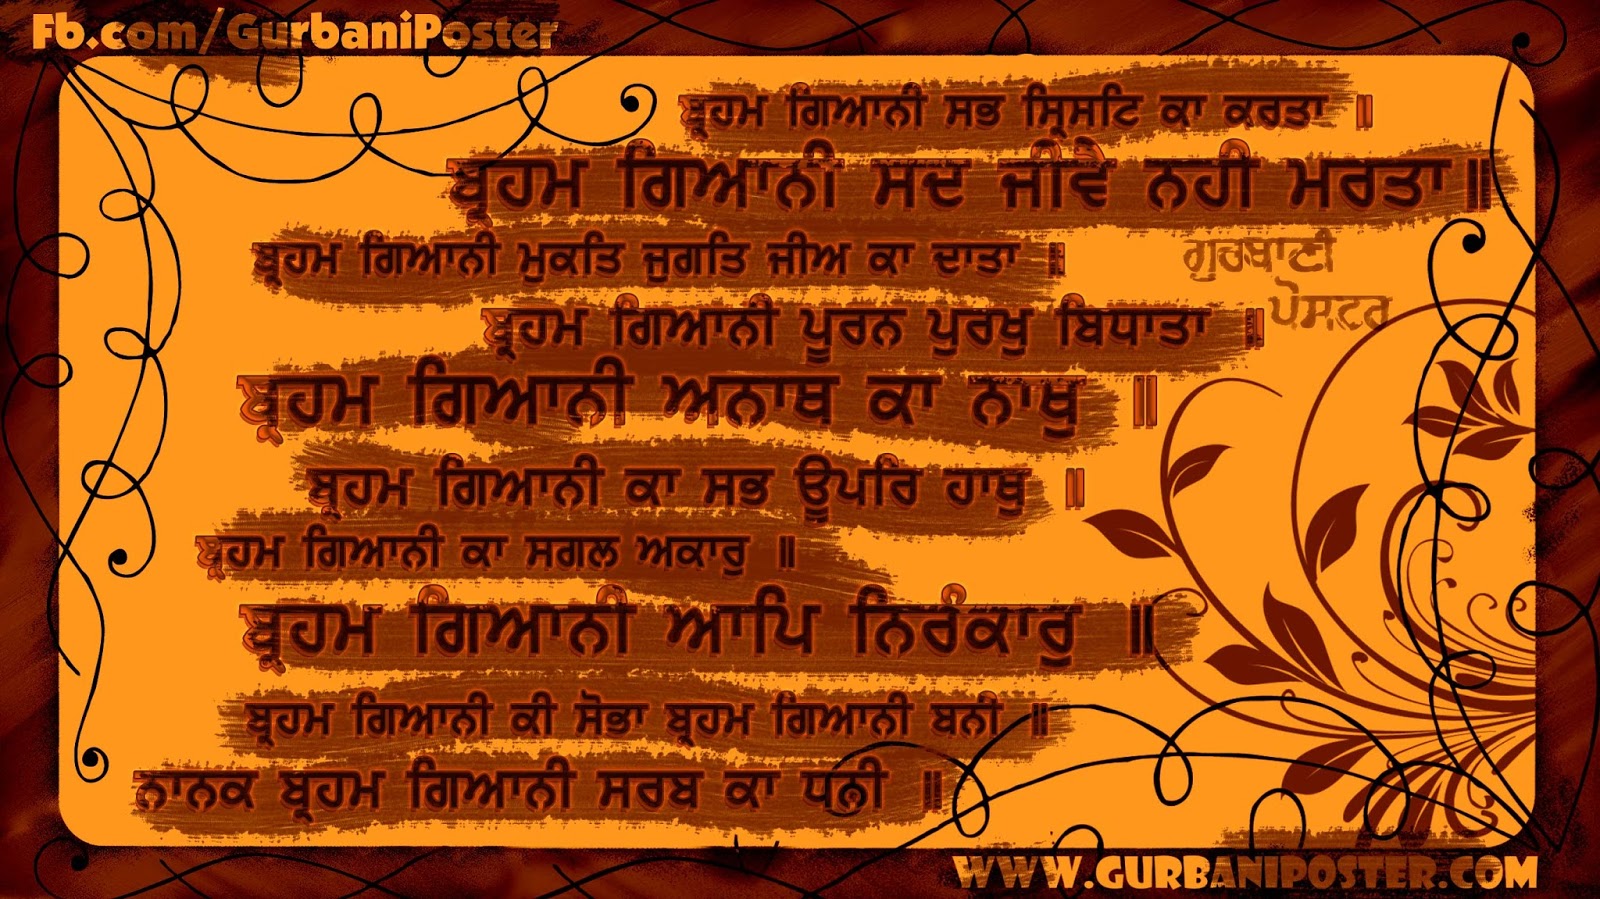 Fb.com/GurbaniPoster
ਬ੍ਰਹਮ ਗਿਆਨੀ ਸਭ ਸ੍ਰਿਸਟਿ ਕਾ ਕਰਤਾ ॥
ਬ੍ਰਹਮ ਗਿਆਨੀ ਸਦ ਜੀਵੈ ਨਹੀ ਮਰਤਾ ॥
ਬ੍ਰਹਮ ਗਿਆਨੀ ਮੁਕਤਿ ਜੁਗਤਿ ਜੀਅ ਕਾ ਦਾਤਾ ॥
ਗੁਰਬਾਣੀ
ਪੋਸਟਰ
ਬ੍ਰਹਮ ਗਿਆਨੀ ਪੂਰਨ ਪੁਰਖੁ ਬਿਧਾਤਾ ॥
ਬ੍ਰਹਮ ਗਿਆਨੀ ਅਨਾਥ ਕਾ ਨਾਥੁ ॥
ਬ੍ਰਹਮ ਗਿਆਨੀ ਕਾ ਸਭ ਊਪਰਿ ਹਾਥੁ ॥
ਬ੍ਰਹਮ ਗਿਆਨੀ ਕਾ ਸਗਲ ਅਕਾਰੁ ॥
ਬ੍ਰਹਮ ਗਿਆਨੀ ਆਪਿ ਨਿਰੰਕਾਰੁ ॥
ਬ੍ਰਹਮ ਗਿਆਨੀ ਕੀ ਸੋਭਾ ਬ੍ਰਹਮ ਗਿਆਨੀ ਬਨੀ ॥
ਨਾਨਕ ਬ੍ਰਹਮ ਗਿਆਨੀ ਸਰਬ ਕਾ ਧਨੀ ॥
WWW.GURBANIPOSTER.COM